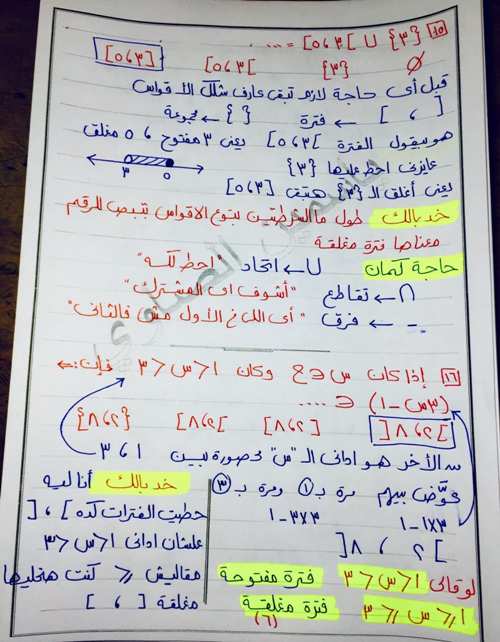 ١٥ ]٣،٥] ∪ {٣} = ....
∅ {٣} ]٣،٥] [٣،٥]
قبل أى حاجة لازم تبقى عارف شكل الأقواس
[ ، ] ← فترة { } ← مجموعة
هو بيقول الفترة ]٣،٥] يعنى ٣ مفتوح ، ٥ مغلق
عايزنى احط عليها {٣}
٣ ٥
يعنى أغلق الـ {٣} هتبقى [٣،٥]
خد بالك طول ما الشرطتين بتوع الاقواس تبص للرقم
معناها فترة مغلقة
حاجة كمان ∪ ← اتحاد "احط لكسه"
∩ ← تقاطع "أشوف اى المشترك"
- ← فرق "أى اللى فى الأول مش فالثانى"
١٦ إذا كان س ∈ ح وكان ١ < س < ٣ فإن :-
(٣س - ١) ∈ ....
]٢،٨[ [٢،٨] ]٢،٨] {٢،٨}
هو الأخر هو ادانى الـ "س" محصورة بين ١ ، ٣
عوّض بيهم مرة بـ ١ ومرة بـ ٣
٣×١-١ ٣×٣-١
]٢ ، ٨[
خد بالك أنا ليه
حطيت الفترات كده ] ، [
علشان ادانى ١ < س < ٣
مقاليش ≤ كنت هخليها
مغلقة [ ، ]
لو قالى ١ < س < ٣ فترة مفتوحة
١ ≤ س ≤ ٣ فترة مغلقة
(٦)
ياسمين الصفتاوي